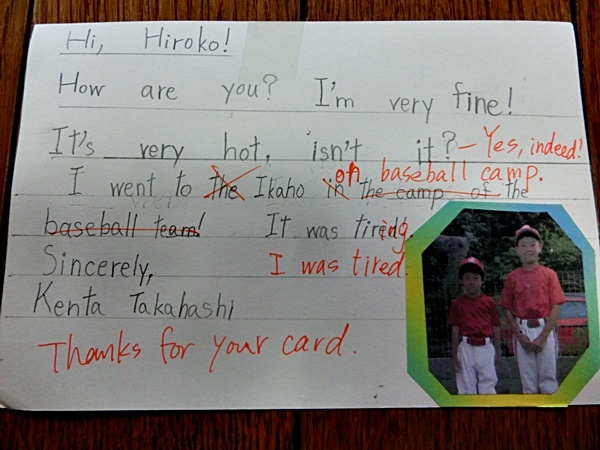 Hi, Hiroko!
How are you? I'm very fine!
It's very hot, isn't it? – Yes, indeed!
on baseball camp.
I went to the Ikaho in the camp of the
baseball team! It was tiring.
Sincerely, I was tired.
Kenta Takahashi
Thanks for your card.